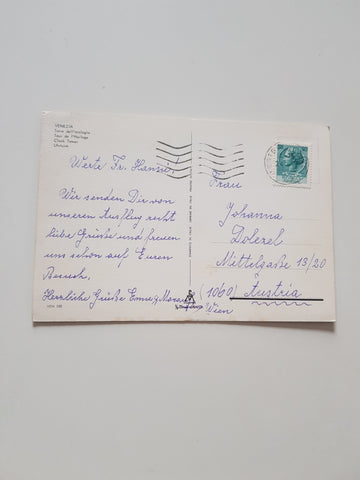 VENEZIA
Torre dell'orologio
Tour de l'Horloge
Clock Tower
Uhrturm
Werte Fr. Hanne!
Wir senden Dir von
unserem Ausflug recht
liebe Grüße und freuen
uns schon auf Euren
Besuch,
Herzliche Grüße
Frau
Johanna
Dolezel
Mittelgaße 13/20
(1060)
Austria
Wien